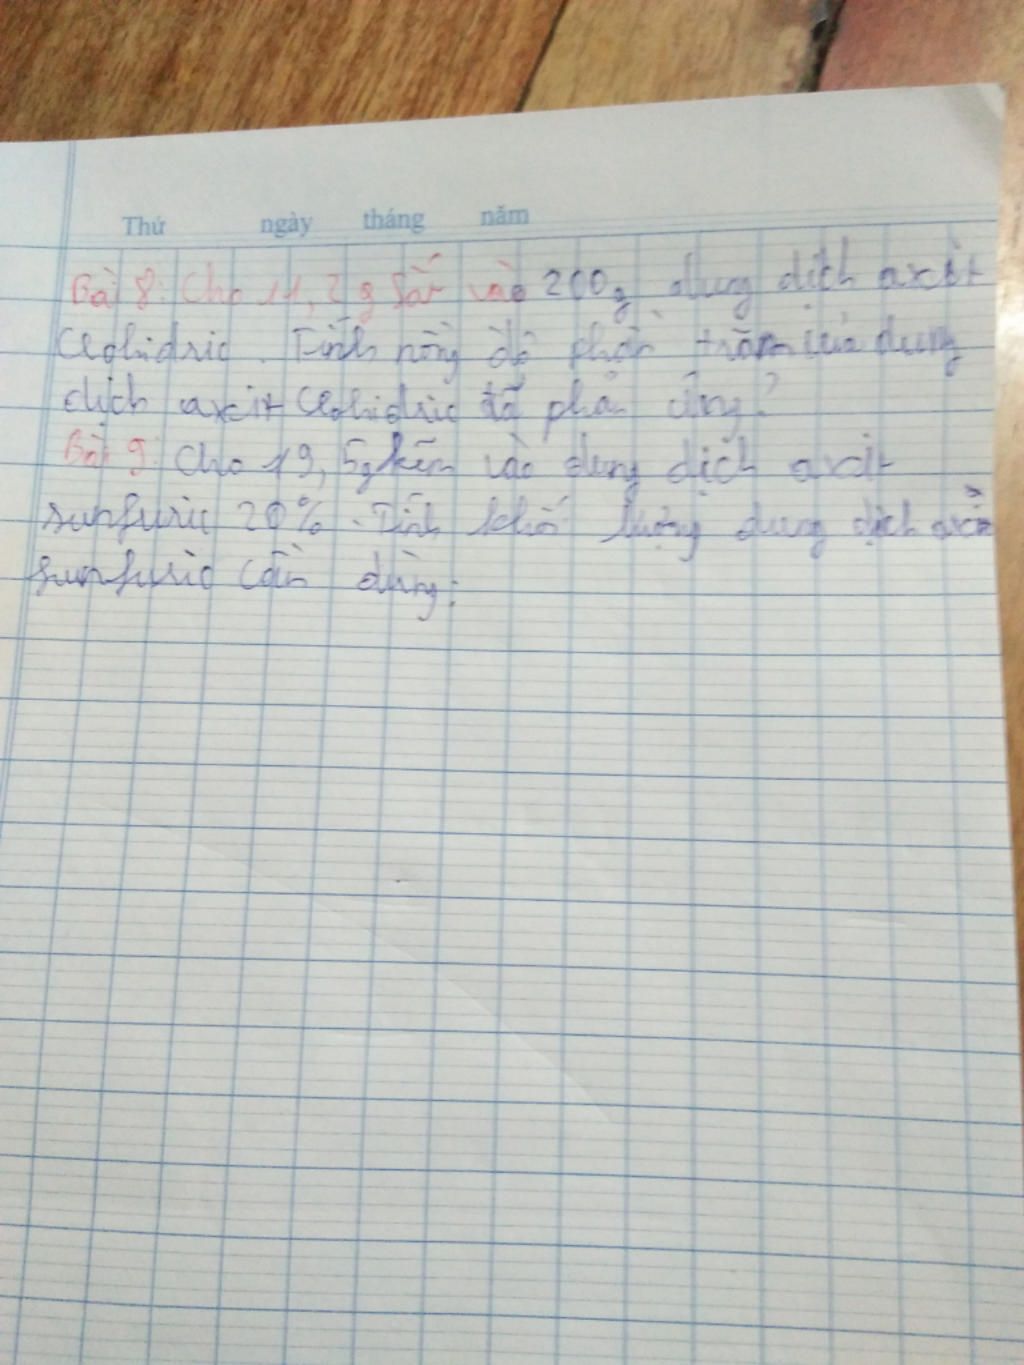 Thứ ngày tháng năm
Bài 8: Cho 11,2g Sắt vào 200g dung dịch axit
Clohidric. Tính nồng độ phần trăm của dung
dịch axit Clohidric đã phản ứng?
Bài 9: Cho 19,5g kẽm vào dung dịch axit
sunfuric 20%. Tính khối lượng dung dịch axit
sunfuric cần dùng: